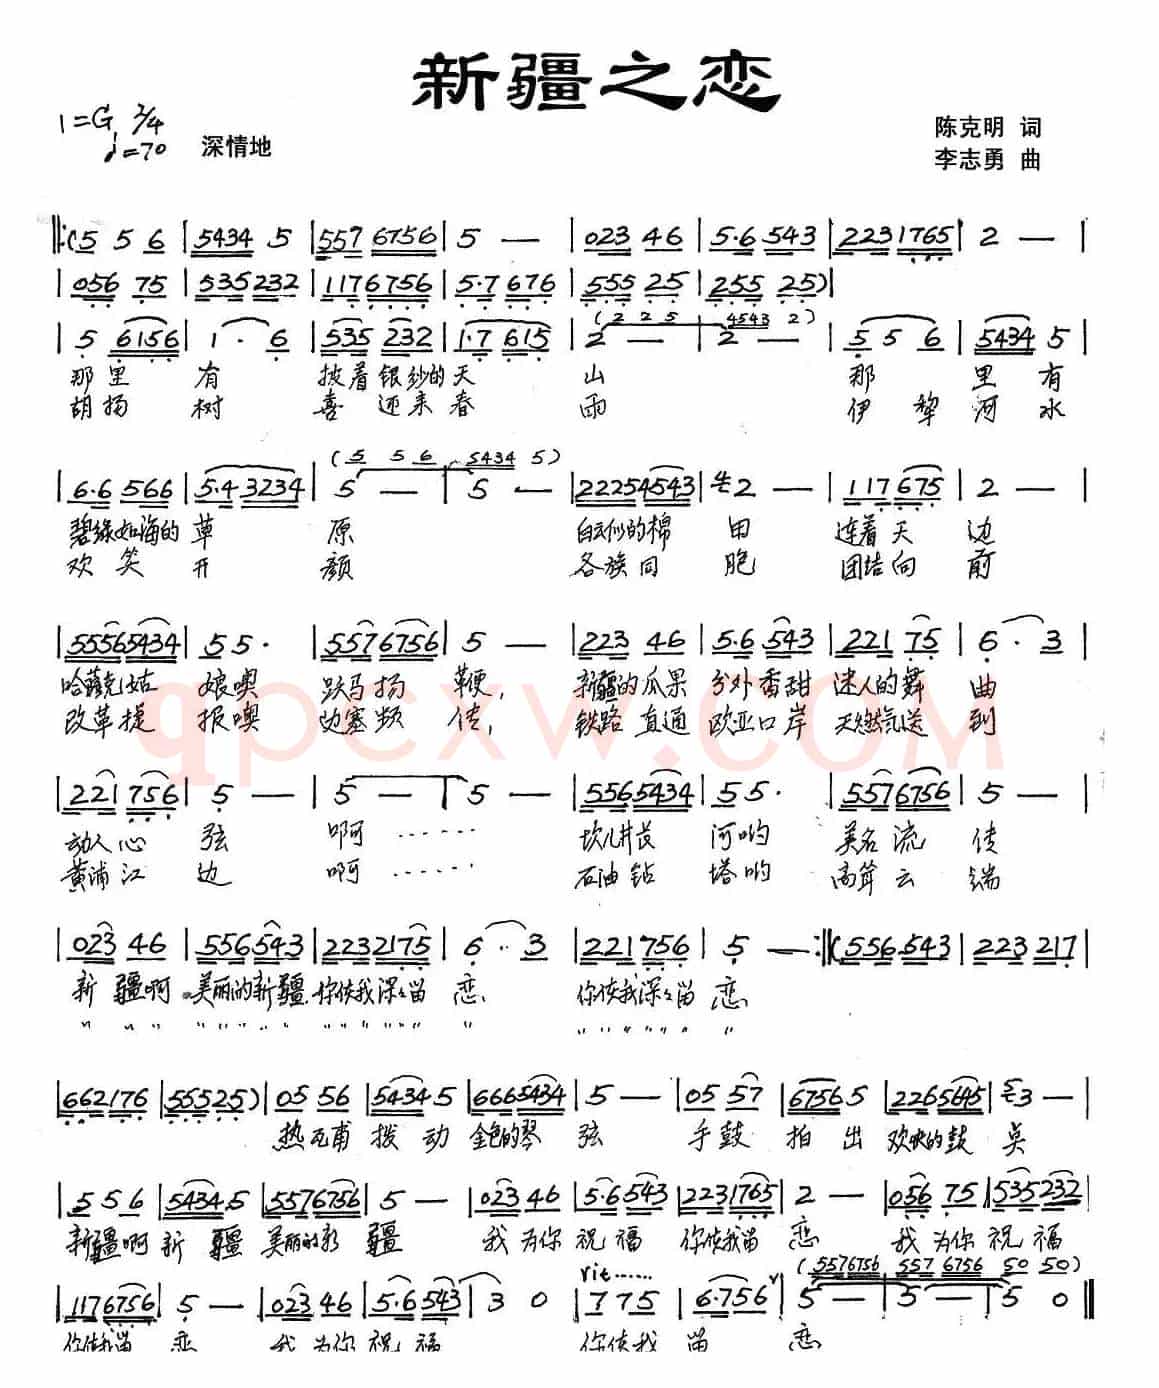 新疆之恋
1=G 2/4
♩=70 深情地
陈克明 词
李志勇 曲
‖:(5 5 6 | 5434 5 | 557 6756 | 5 — | 023 46 | 5·6 543 | 223 1765 | 2 — |
| 056 75 | 535 232 | 117 6756 | 5·7 676 | 555 25 | 255 25) |
(2 2 5 4543 2)
| 5 6156 | 1· 6 | 535 232 | 1·7 615 | 2 — | 2 — | 5 5 6 | 5434 5 |
那里 有 披着银纱的天 山 那 里有
胡杨 树 喜迎来春 雨 伊犁河水
(5 5 6 5434 5)
| 6·6 566 | 5·4 3234 | 5 — | 5 — | 22254543 | 2 — | 117 675 | 2 — |
碧绿如海的草 原 白云似的棉 田 连着天 边
欢笑开 颜 各族同胞 团结向前
| 55565434 | 5 5· | 557 6756 | 5 — | 223 46 | 5·6 543 | 221 75 | 6· 3 |
哈萨克姑 娘噢 跃马扬 鞭, 新疆的瓜果 分外香甜 迷人的舞 曲
改革捷 报噢 边塞频 传, 铁路直通 欧亚口岸 天燃气送 到
| 221 756 | 5 — | 5 — | 5 — | 556 5434 | 5 5· | 557 6756 | 5 — |
动人心 弦 啊 …… 坎儿井 河哟 美名流 传
黄浦江 边 啊 …… 石油钻 塔哟 高耸云 端
| 023 46 | 556 543 | 223 2175 | 6·· 3 | 221 756 | 5 — :‖(556 543 | 223 217 |
新疆啊 美丽的新疆 你使我深深留 恋 你使我深深留 恋
〃 〃 〃 〃 〃 〃 〃 〃 〃 〃 〃 〃 〃 〃 〃
| 662 176 | 555 25) | 05 56 | 5434 5 | 666 5434 | 5 — | 05 57 | 6756 5 | 226 5645 | 3 — |
热瓦甫 拨动 金色的琴 弦 手鼓 拍出 欢快的鼓 点
| 5 5 6 | 5434 5 | 557 6756 | 5 — | 023 46 | 5·6 543 | 223 1765 | 2 — | 056 75 | 535 232 |
新疆啊 新疆 美丽的新 疆 我为你 祝福 你使我留 恋 我为你 祝福
rit……
(5576756 557 6756 50 50)
| 117 6756 | 5 — | 023 46 | 5·6 543 | 3 0 | 7 75 | 6·756 | 5 — | 5 — | 5 0 ‖
你使我留 恋 我为你 祝福 你使我 留 恋
qpcxw.com